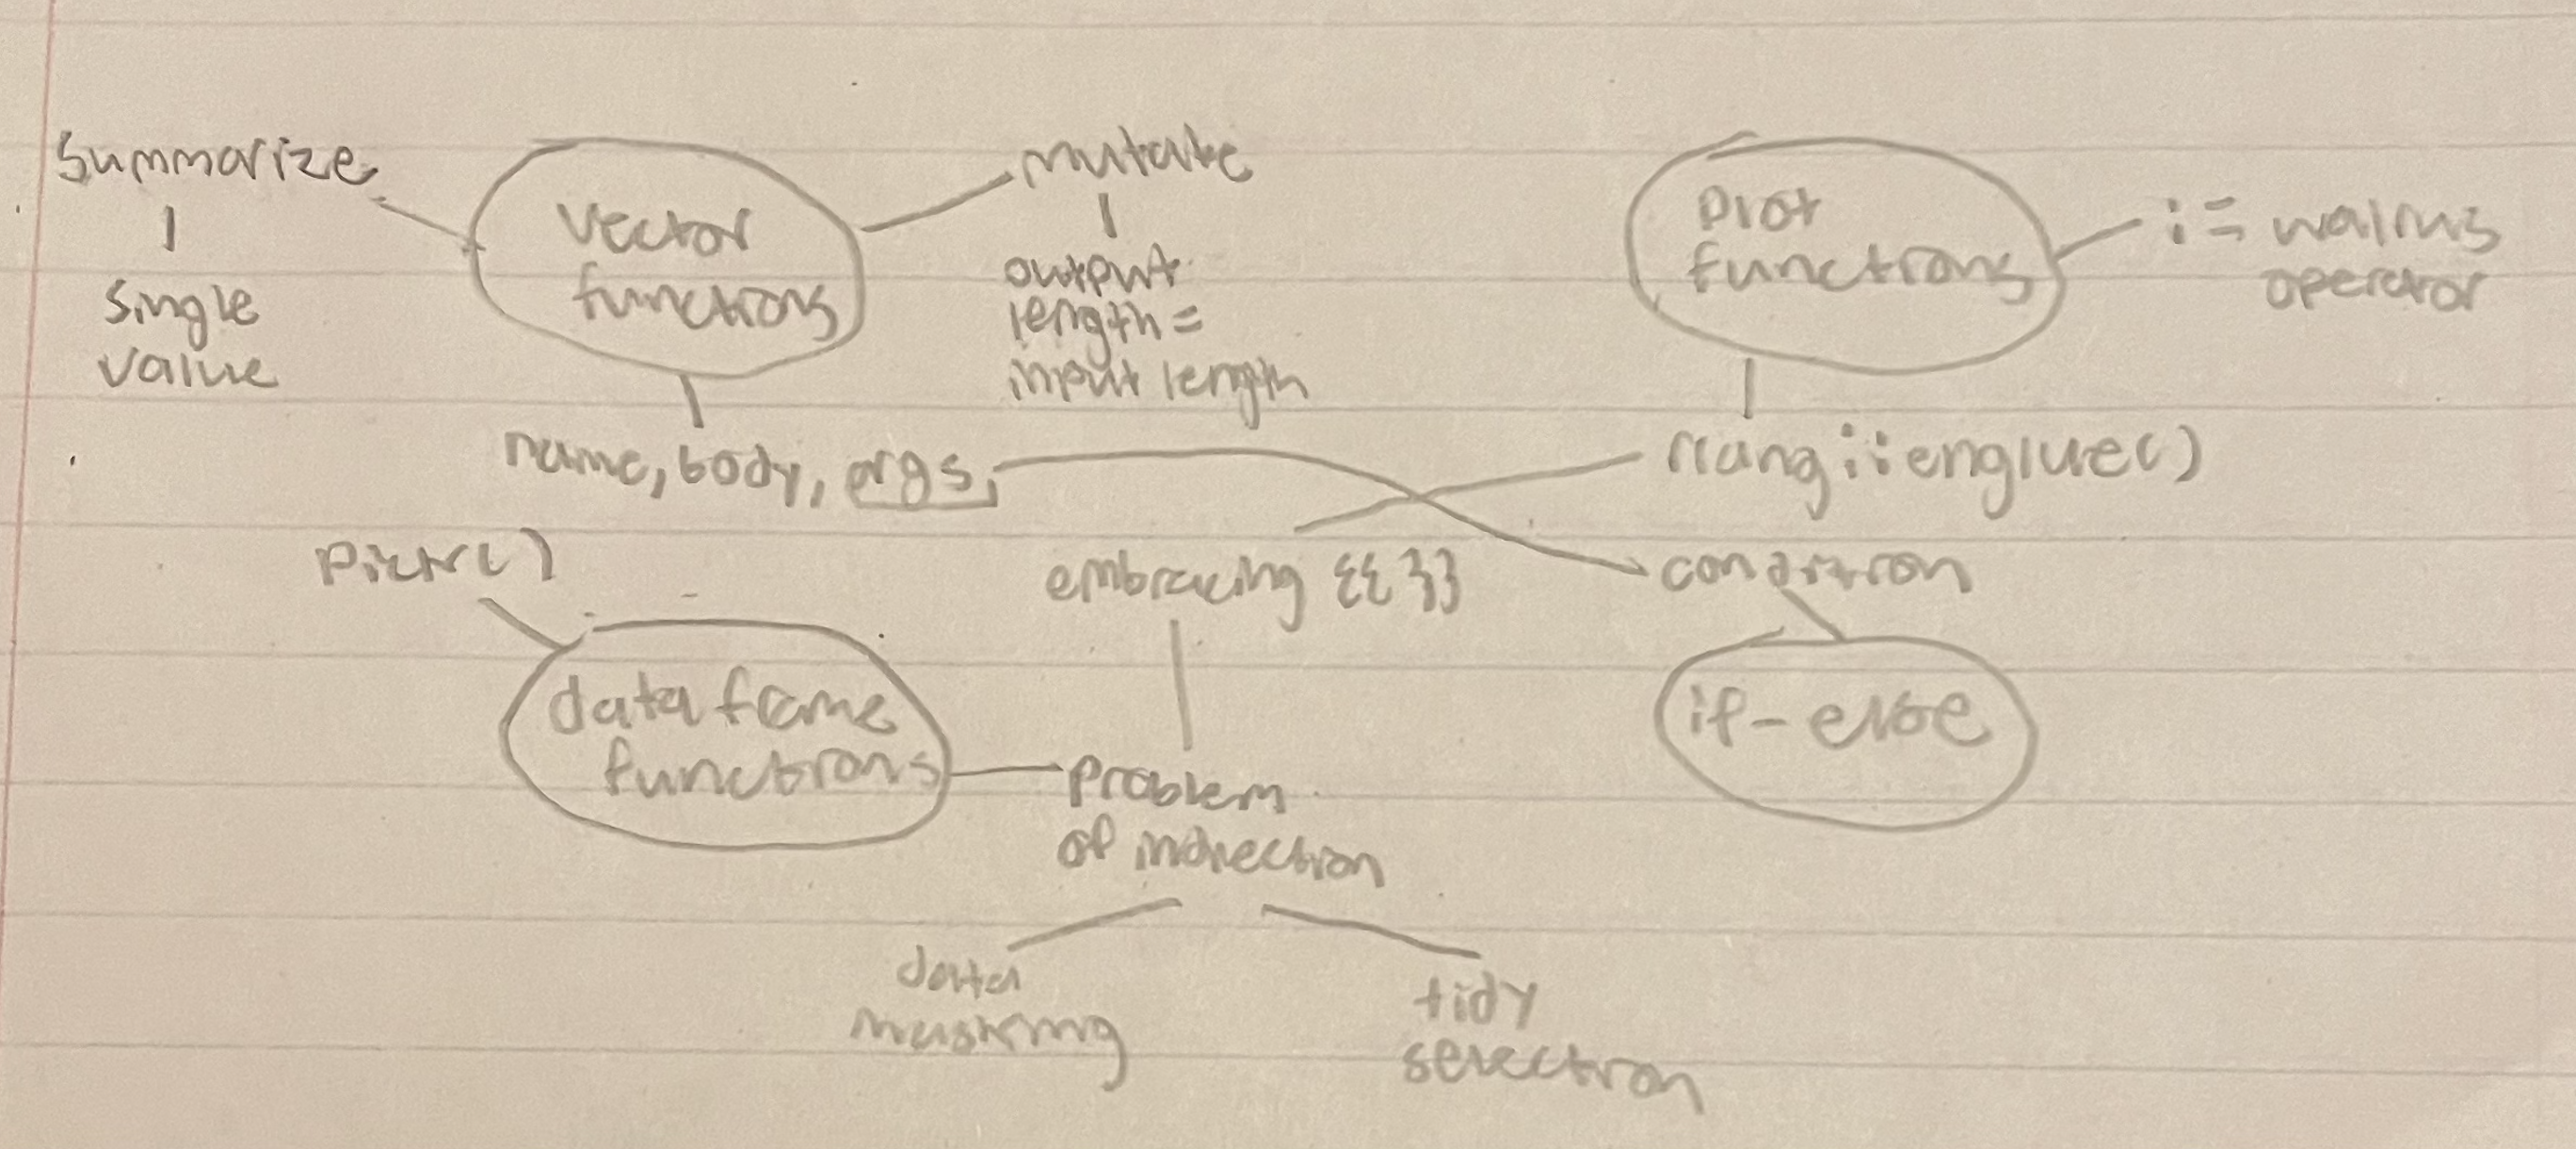 summarize
single
value
vector
functions
mutate
output
length =
input length
name, body, args
plot
functions
:= walrus
operator
rlang::englue()
embracing {{ }}
condition
if-else
pick()
data frame
functions
problem
of indirection
data
masking
tidy
selection